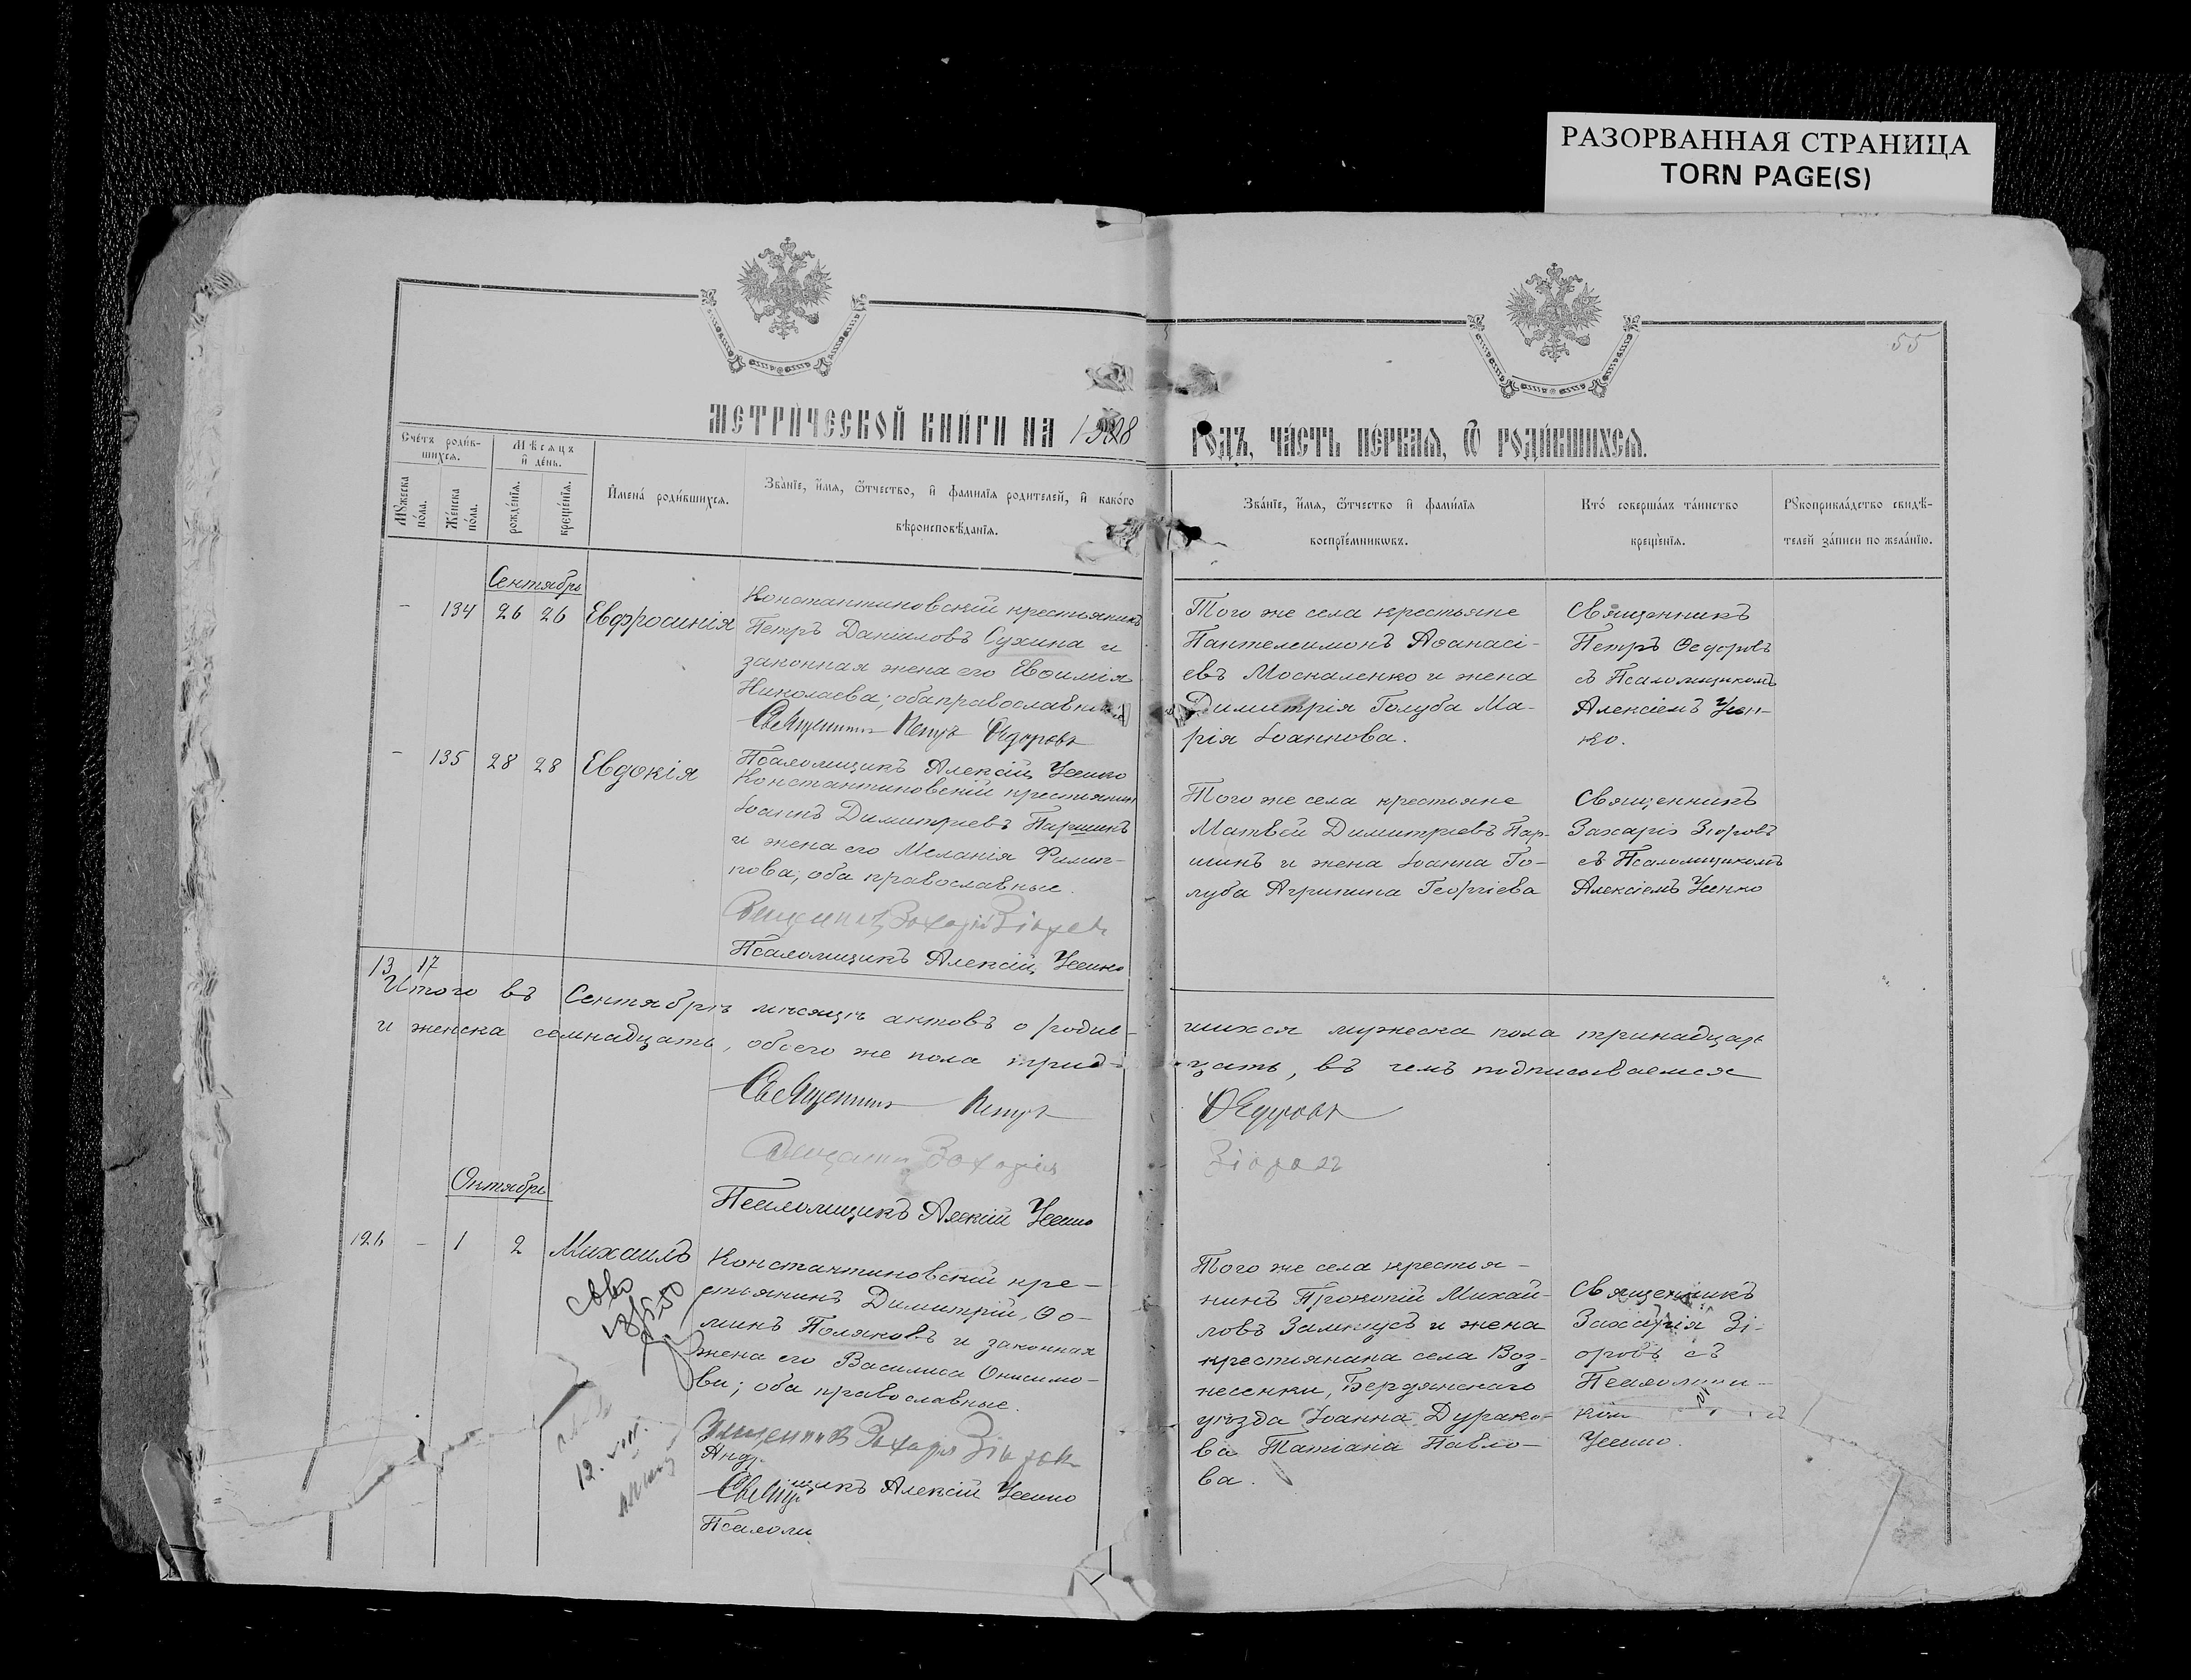 РАЗОРВАННАЯ СТРАНИЦА
TORN PAGE(S)
55
МЕТРИ́ЧЕСКОЙ КНИ́ГИ НА
ГОДЪ, ЧА́СТЬ ПЕ́РВАЯ, Ѿ РОДИ́ВШИХСЯ.
Сче́тъ роди́в-
шихся.
Мѣсяцъ
и҆ де́нь.
Мꙋ́жеска
по́ла.
Же́нска
по́ла.
рожде́нїѧ.
креще́нїѧ.
И҆мена́ роди́вшихся.
Зва́нїе, и҆́мѧ, ѻ҆́тчество, и҆ фами́лїѧ роди́телей, и҆ како́го
вѣроисповѣ́данїѧ.
Зва́нїе, и҆́мѧ, ѻ҆́тчество и҆ фами́лїѧ
воспрїе́мникωвъ.
Кто́ соверша́лъ та́инство
креще́нїѧ.
Рꙋкоприкла́дство свидѣ́-
телей за́писи по жела́нїю.
Сентябрь
- 134 26 26 Евфросинія
Константиновскій крестьянинъ
Петръ Даніиловъ Сухина и
законная жена его Евѳимія
Николаева; оба православные
Священникъ Петръ Ѳедоровъ
Псаломщикъ Алексій Усенко
Того же села крестьяне
Пантелеимонъ Аѳанасі-
евъ Москаленко и жена
Димитрія Голуба Ма-
рія Іоаннова.
Священникъ
Петръ Ѳедоровъ
съ Псаломщикомъ
Алексіемъ Усен-
ко.
- 135 28 28 Евдокія
Константиновскій крестьянинъ
Іоаннъ Димитріевъ Паршинъ
и жена его Меланія Филип-
пова; оба православные.
Священникъ Захарія Зіоровъ
Псаломщикъ Алексій Усенко
Того же села крестьяне
Матвѣй Димитріевъ Пар-
шинъ и жена Іоанна Го-
луба Агрипина Георгіева
Священникъ
Захарія Зіоровъ
съ Псаломщикомъ
Алексіемъ Усенко
13 17
Итого въ Сентябрѣ мѣсяцѣ актовъ о родив-
шихся мужеска пола тринадцать
и женска семнадцать, обоего же пола трид-
цать, въ чемъ подписываемся
Священникъ Петръ
Ѳедоровъ
Священникъ Захарія
Зіоровъ
Псаломщикъ Алексій Усенко
Октябрь
126 - 1 2 Михаилъ
Константиновскій кре-
стьянинъ Димитрій Ѳо-
минъ Поляковъ и законная
жена его Василиса Онисимо-
ва; оба православные.
Священникъ Захарія Зіоровъ
Псаломщикъ Алексій Усенко
Того же села крестья-
нинъ Прокопій Михай-
ловъ Замкусъ и жена
крестьянина села Воз-
несенки, Бердянскаго
уѣзда Іоанна Дурако-
ва Татіана Павло-
ва.
Священникъ
Захарія Зі-
оровъ съ
Псаломщи-
ком
Усенко.